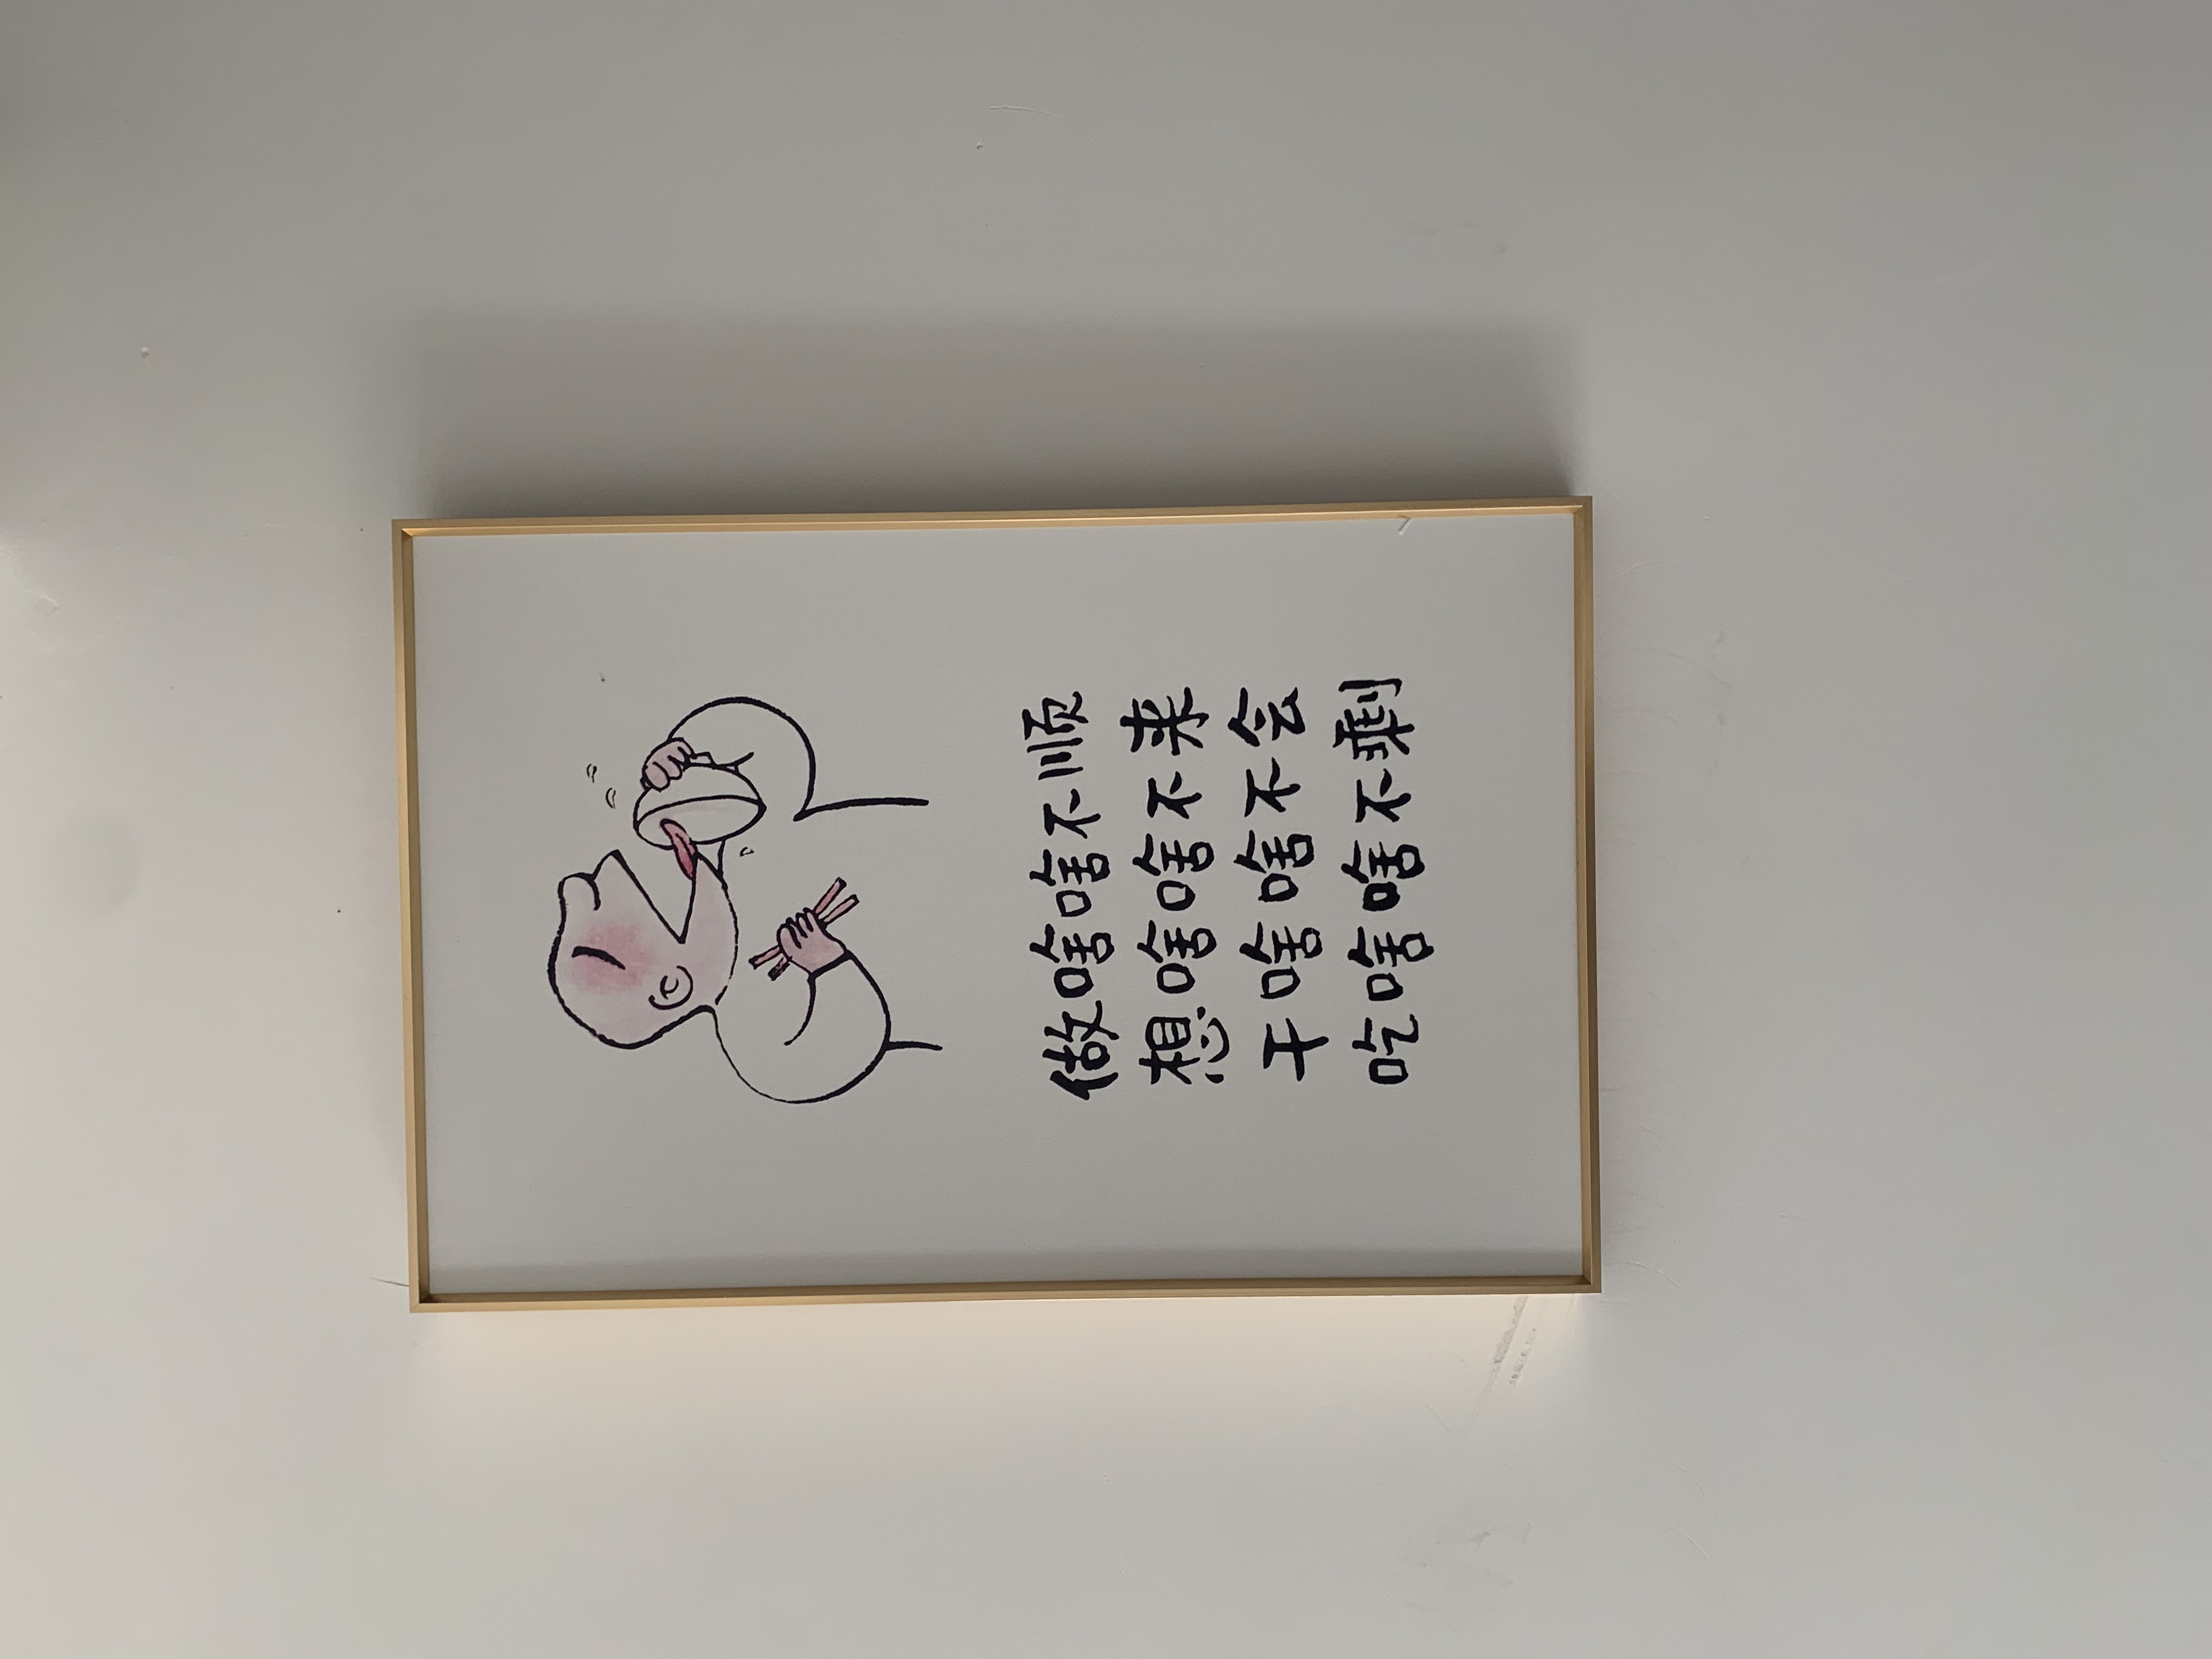 做啥啥不顺
想啥啥不来
干啥啥不会
吃啥啥不剩